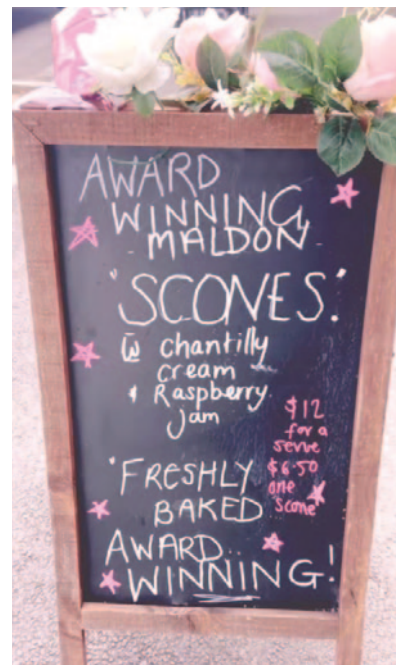 AWARD
WINNING
- MALDON -
'SCONES.'
W̄ chantilly
cream
& Raspberry
jam
$12
for a
serve
$6.50
one
scone
'FRESHLY
BAKED
AWARD..
WINNING!